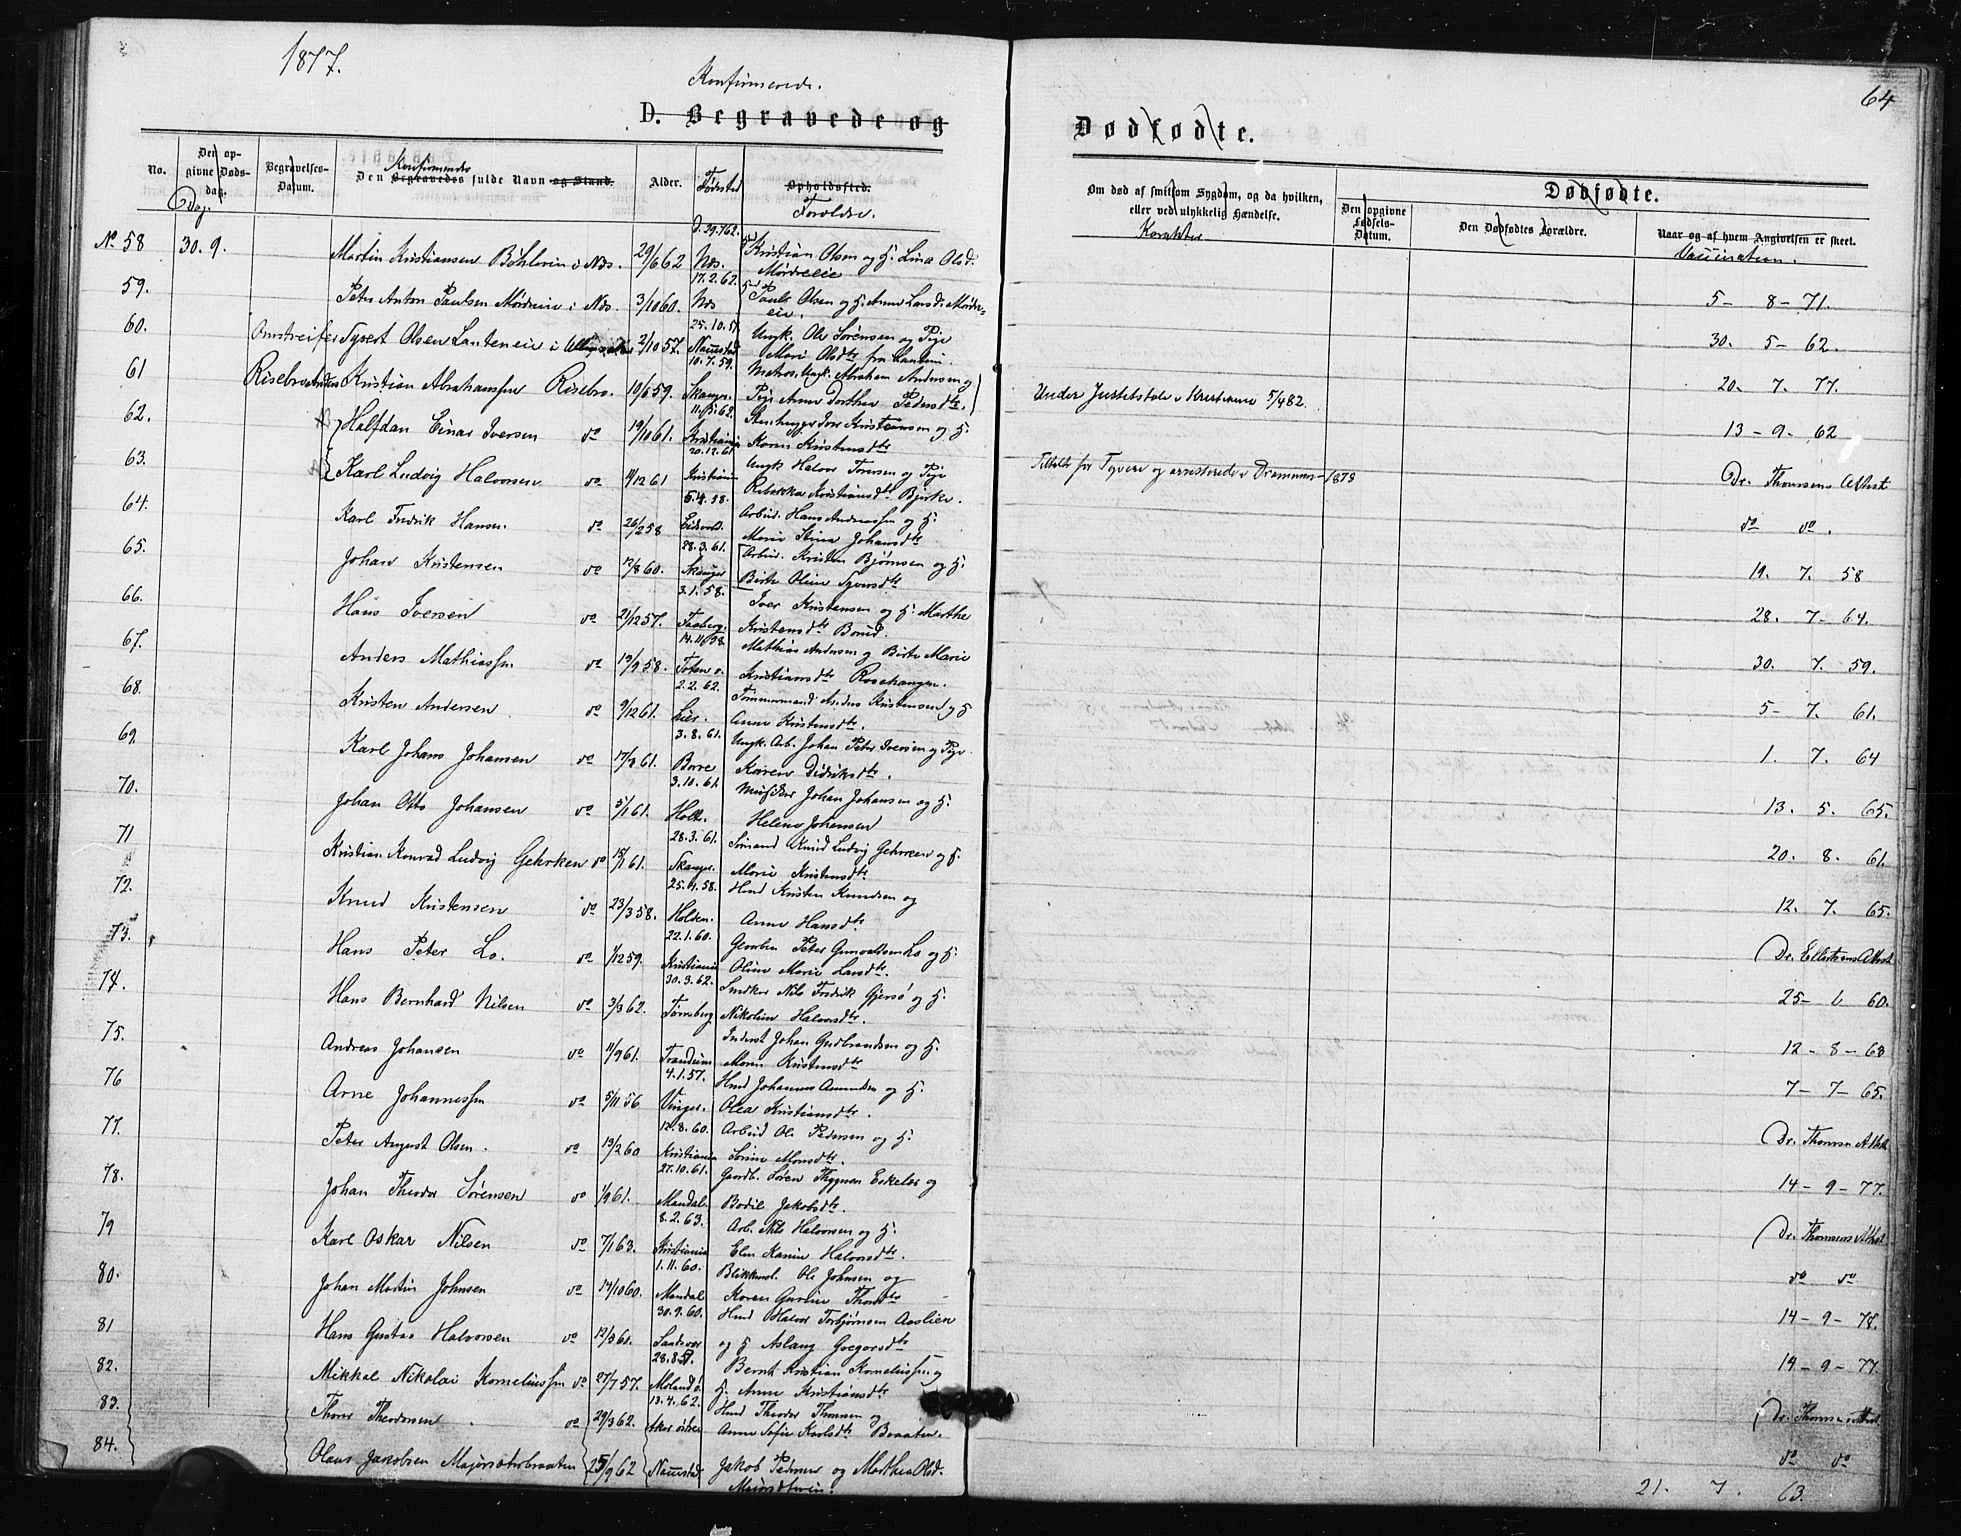 1877.
64
Konfirmerede.
D. Begravede og
Dødfødte.
No.
Den opgivne Dødsdag.
Dag.
Begravelses-Datum.
Konfirmerede
Den Begravedes fulde Navn og Stand.
Alder.
Fødested
Opholdssted.
Foreldre.
Om død af smitsom Sygdom, og da hvilken, eller ved ulykkelig Hændelse.
Karakter
Dødfødte.
Den opgivne Fødsels-Datum.
Den Dødfødtes Forældre.
Naar og af hvem Angivelsen er skeet.
Vaccination.
D. 29.7 62.
No 58 30. 9. Martin Kristiansen Bøhlereie i Næs. 29/6 62 Næs. Kristian Olsen og H. Lina Olsd.
17.2.62. Mørdreeie
5 - 8 - 71.
59. Peter Anton Paulsen Mørdreeie i Næs. 3/10 60. Næs Paul Olsen og H. Anne Larsd. Mørdre-
25.10.57 eie.
30. 5 - 62.
60. Omstreifer Syvert Olsen Lanteneie i 2/10 57. Naustad Ungk. Ole Sørensen og Pige
10.7.59. Mari Olsdtr fra Lanteni.
20. 7. 77.
61 Risebro Kristian Abrahamsen Risebro. 10/6 59. Skanger. Matros. Ungk. Abraham Andersen og
Pige Anne Dorthea Pedersdtr.
Under Justitstole i Kristiania 5/4 82.
13 - 9 - 62
62. Halfdan Einar Iversen do 19/10 61. Kristiania Stenhugger Iver Kristiansen og H.
20.12.61 Karen Kristensdtr
Dr. Thomsens Attest
63. Karl Ludvig Halvorsen do 11/12 61 Kristiania Ungk Halvor Tronsen og Pige
5.4.58. Rebekka Kristiansdtr Bjerke.
Tiltalt for Tyveri og arresteret i Drammen 1879
do do.
64. Karl Fredrik Hansen do 26/2 58 Eidsvold. Arbeid. Hans Andreassen og H.
28.3.61. Marie Stina Johansdtr
19. 7. 58
65. Johan Kristensen do 12/8 60. Skanger Arbeid. Kristen Bjørnsen og H.
3.1.58. Birte Oline Syversdtr
28. 7 - 64.
66. Hans Iversen do 21/12 57. Faaberg. Iver Kristensen og H. Marthe
Kristensdtr Borud.
30. 7. 59.
67. Anders Mathiassen do 19/9 58. Toten v. Mathias Andersen og Birte Marie
2.2.62. Kristiansdtr Rosehaugen.
5 - 7. 61.
68. Kristen Andersen. do 9/12 61. Lier. Tømmermand Anders Kristensen og H
3.8.61. Anne Kristensdtr.
1. 7. 64
69. Karl Johans Johansen do 17/2 61. Borre Ungk. Arb. Johan Peter Iversen og Pige
3.10.61. Karen Didriksdtr.
13. 5. 65.
70. Johan Otto Johansen do 5/1 61. Holte. Musiker Johan Johansen og H.
28.3.61. Helene Johansen
20. 8. 61.
71 Kristian Konrad Ludvig Gehrken do 15/1 61. Skanger. Sømand Knud Ludvig Gehrken og H.
25.4.58. Marie Kristensdtr
12. 7. 65.
72. Knud Kristensen do 23/3 58. Holden. Hmd Kristen Knudsen og
22.1.60. Anne Hansdtr
Dr. Ellertsens Attest
73. Hans Peter Lo. do 1/12 59. Kristiania Gevorben Peter Gunvaldsen Lo og H.
30.3.62. Oline Marie Larsdtr.
25 - 6 60.
74. Hans Bernhard Nilsen do 3/3 62. Tønsberg Snedker Nils Fredrik Gjersø og H.
Nikoline Halvorsdtr.
12 - 8 - 63
75. Andreas Johansen do 11/9 61. Trandum Inderst Johan Gudbrandsen og H.
4.1.57. Maren Kristensdtr
7 - 7 - 65.
76 Arne Johannessen do 5/11 56 Vinger. Hmd Johannes Amundsen og H.
12.8.60. Olea Kristiansdtr.
Dr. Thomsens Attest
77. Peter August Olsen. do 19/2 60 Kristiania Arbeid Ole Pedersen og H.
27.10.61. Sørine Monsdtr.
14 - 9 - 77.
78. Johan Theodor Sørensen do 1/9 61. Mandal. Gaardb. Søren Thygesen Eskeler og
8.2.63. Bodil Jakobsdtr.
Dr. Thomsens Attest
79 Karl Oskar Nilsen do 7/1 63. Kristiania Arb. Nils Halvorsen og H.
1.11.60. Elen Karine Halvorsdtr.
do do
80. Johan Martin Johnsen do 14/10 60. Mandal Blikkensl. Ole Johnsen og
30.9.60. Karen Gurine Thorsdtr
14 - 9 - 78.
81 Hans Gustav Halvorsen do 12/3 60. Sandsvær Hmd Halvor Torbjørnsen Aaslien
28.8.57. og H Aslaug Gregorsdtr
14 - 9 - 77.
82. Mikkal Nikolai Korneliussen do 27/7 57. Moland ø. Bernt Kristian Korneliussen og
13.4.62. H. Anne Kristiansdtr
Dr. Thomsens Attest
83. Thorer Theodorsen do 29/3 62. Aker østre Hmd Theodor Thoresen og
Anne Sofie Karlsdtr Braaten.
do do
84. Olaus Jakobsen Majorsæterbraaten 25/9 62 Naustad Jakob Pedersen og Marthea Olsd.
21. 7. 63.